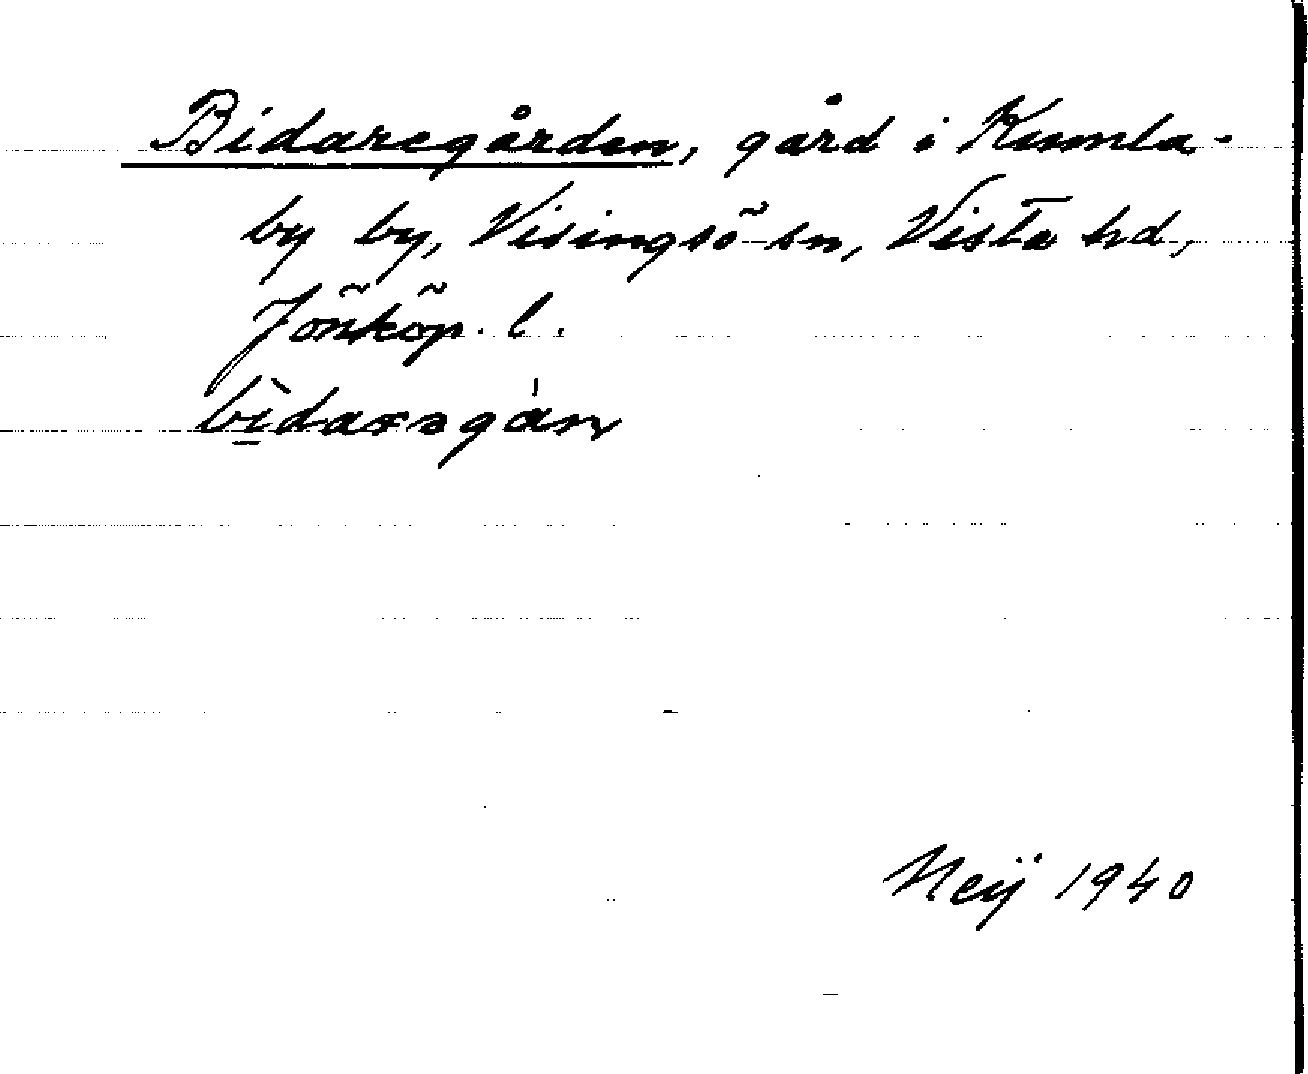 Bidaregården, gård i Kumla-
by by, Visingsö sn, Vista hd,
Jönköp. l.
bìdarəgán
Neij 1940